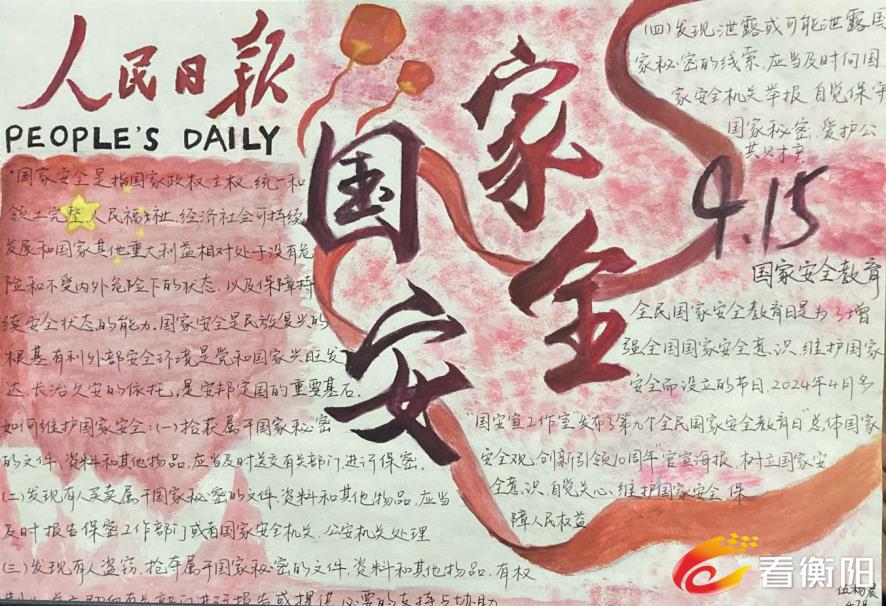 人民日报
PEOPLE'S DAILY
国家安全
"国家安全是指国家政权、主权、统一和
领土完整、人民福祉、经济社会可持续
发展和国家其他重大利益相对处于没有危
险和不受内外危险下的状态,以及保障持
续安全状态的能力。国家安全是民族复兴的
根基,有利外部安全环境是党和国家兴旺发
达、长治久安的依托,是安邦定国的重要基石。
如何维护国家安全:(一)拾获属于国家秘密
的文件、资料和其他物品,应当及时送交有关部门,进行保密。
(二)发现有人买卖属于国家秘密的文件、资料和其他物品,应当
及时报告保密工作部门或者国家安全机关、公安机关处理
(三)发现有人盗窃、抢夺属于国家秘密的文件、资料和其他物品,有权
(四)发现泄露或可能泄露国
家秘密的线索,应当及时向国
家安全机关举报,自觉保守
国家秘密,爱护公
共财产
4.15
国家安全教育
全民国家安全教育日是为了增
强全国国家安全意识,维护国家
安全而设立的节日,2024年4月
"国安宣工作室"发布了第九个全民国家安全教育日"总体国家
安全观 创新引领10周年"官宣海报,树立国家安
全意识,自觉关心、维护国家安全,保
障人民权益
看衡阳